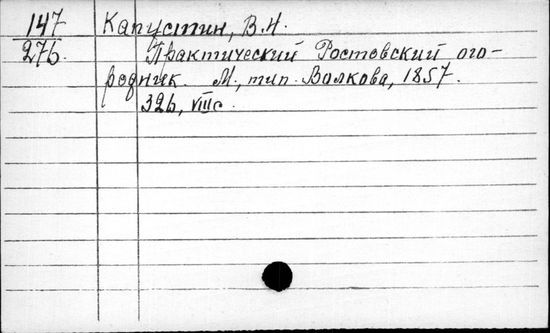 147 Капустин, В.И.
276. Практический Ростовский ого-
родник. М., тип. Волкова, 1857.
326, VIII с.